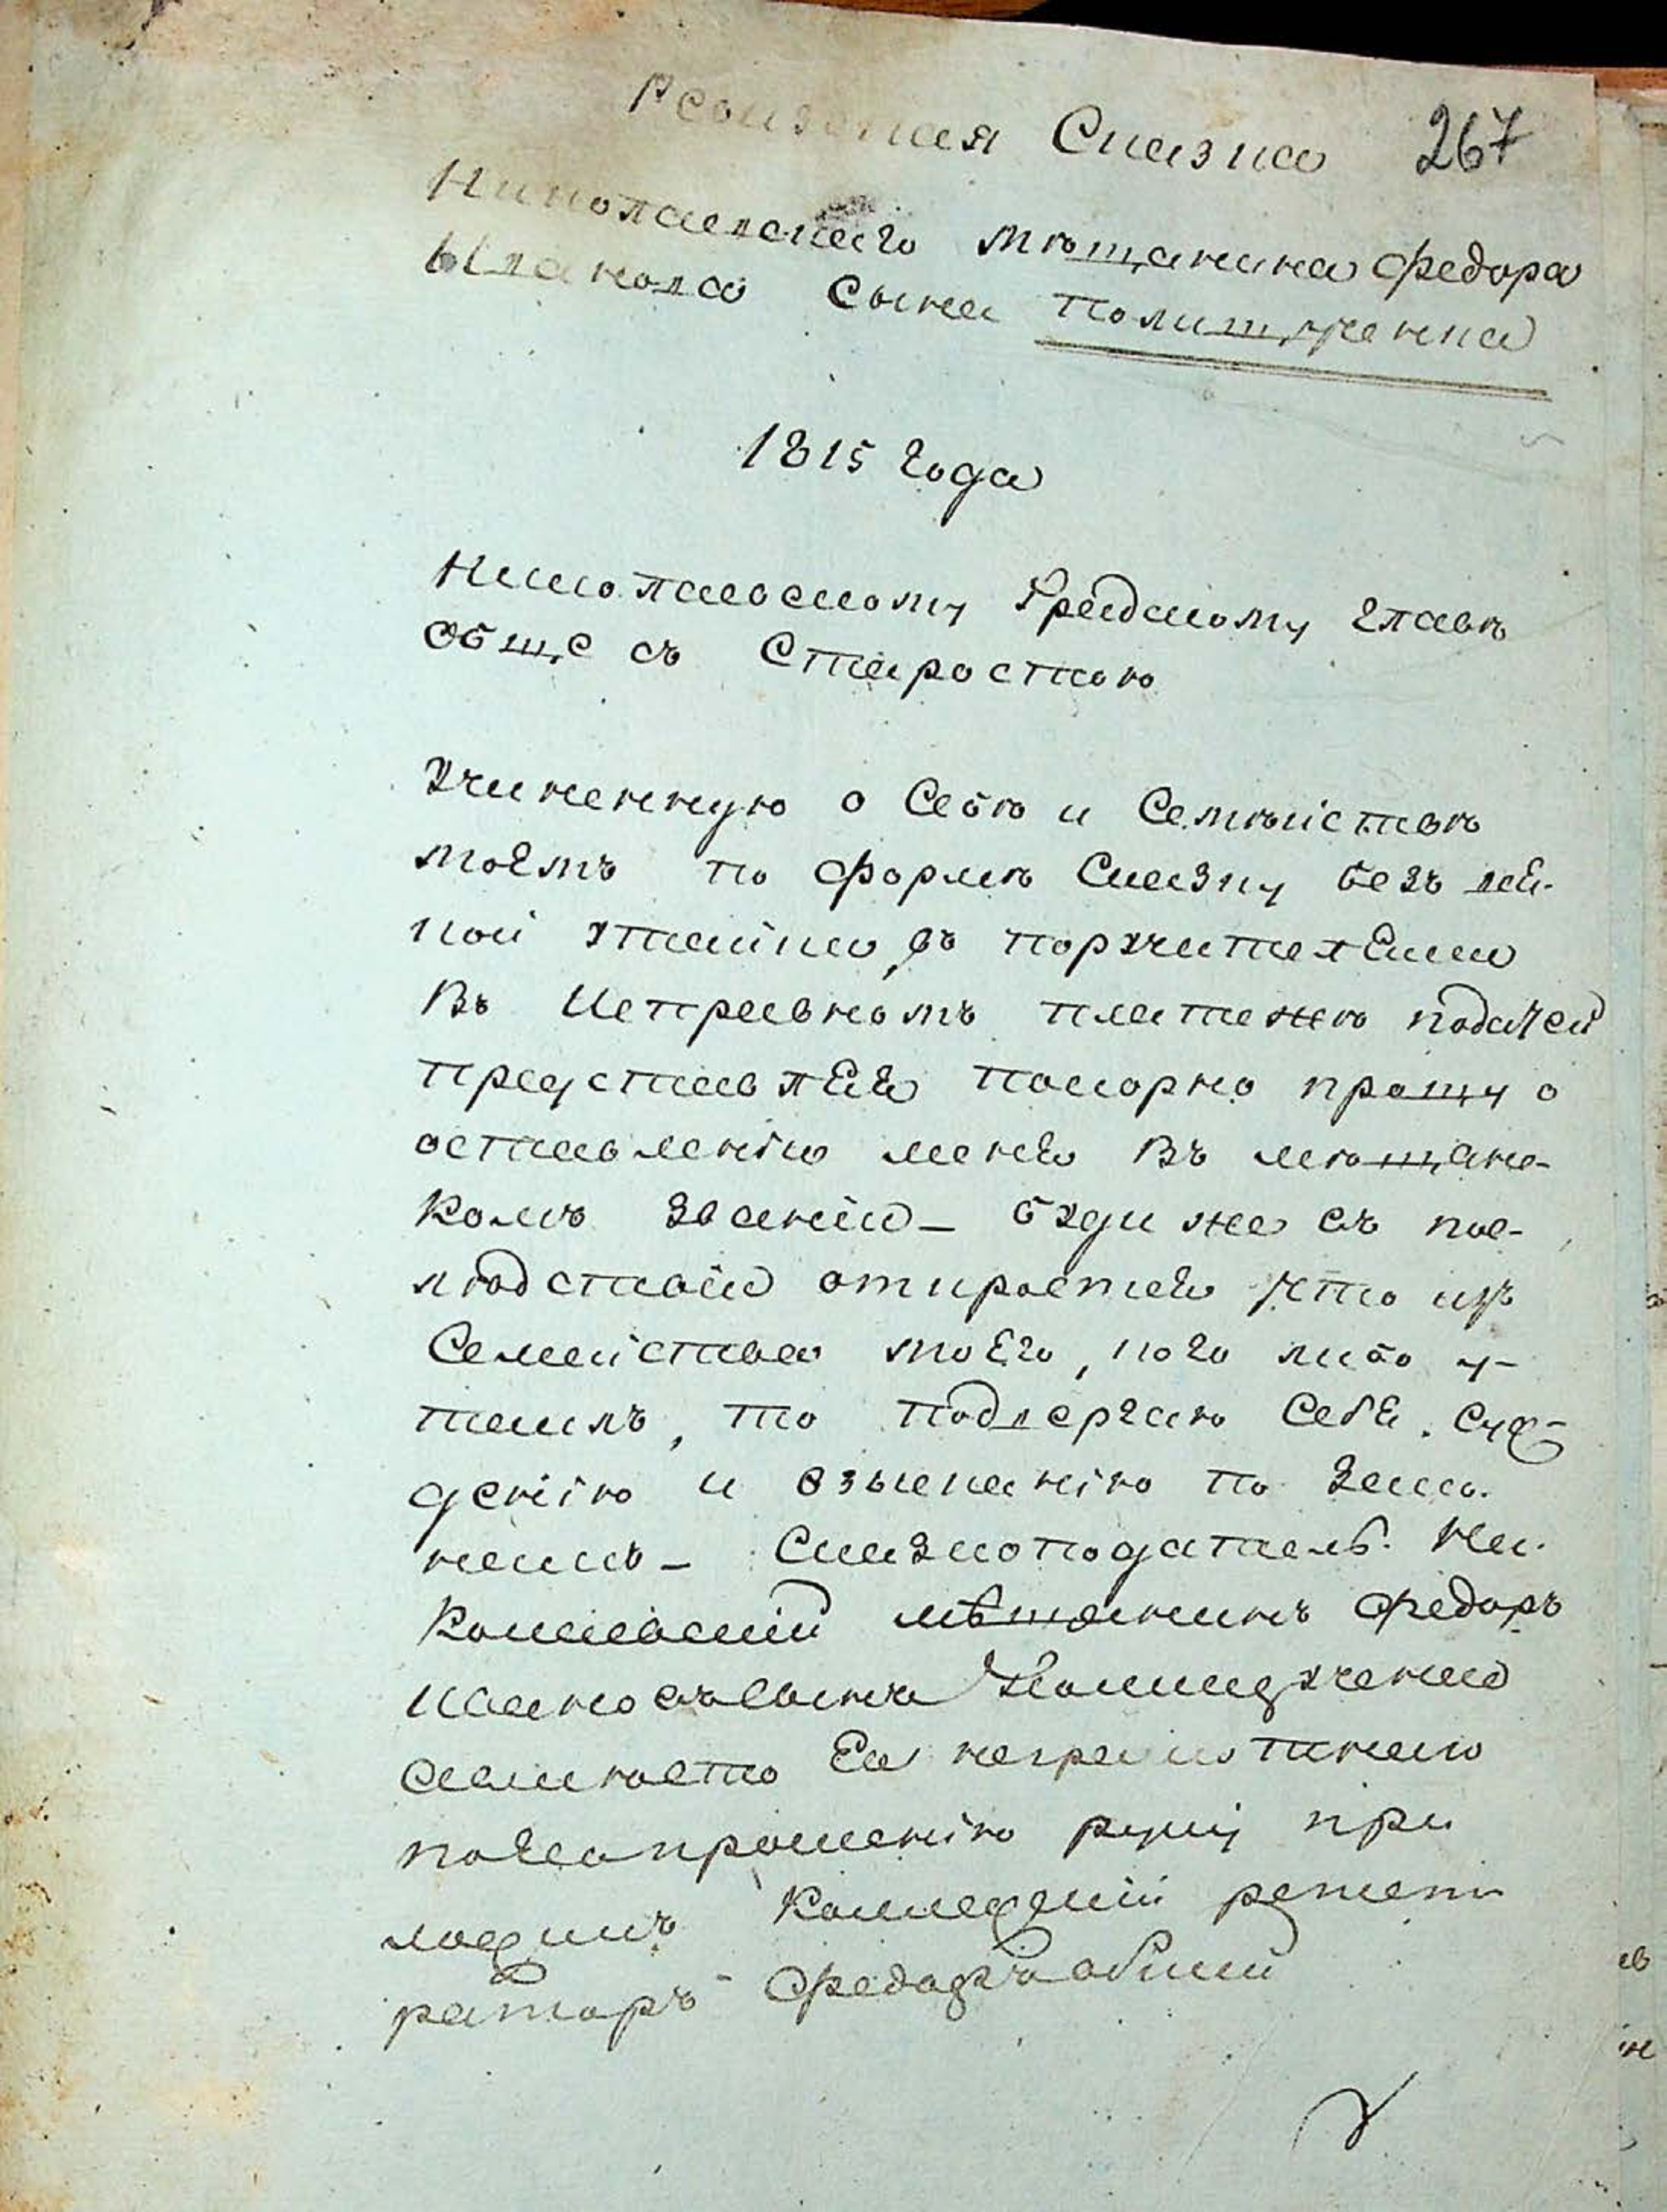 Ревизская Сказка 267
Николаевскаго мѣщанина Федора
Иванова сына
1815 года
Николаевскому Градскому главѣ
обще съ Старостою
Учиненную о Себѣ и Семѣйствѣ
моемъ по форме Сказку безъ вся-
кой утайки, съ поручителями
Въ Исправномъ платежѣ податей
представляя покорно прошу о
оставленіи меня Въ мѣщанс-
комъ званіи – буди же въ пос-
лѣдствіи откроется что изъ
Семейства моего, кого либо у-
таилъ, то подвергаю Себя Суж-
денію и взысканію по зако-
намъ – Сказкоподатель Ни-
колаевскій мѣщанинъ Федоръ
Ивановъ Сынъ
а вместо Его неграмотнаго
по его прошенію руку при
ложилъ Коллежскій регист
раторъ Федоръ